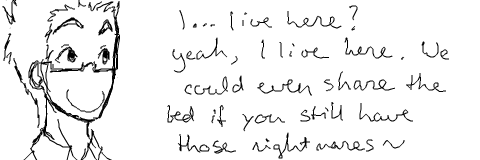 I... live here?
yeah, I live here. We
could even share the
bed if you still have
those nightmares~